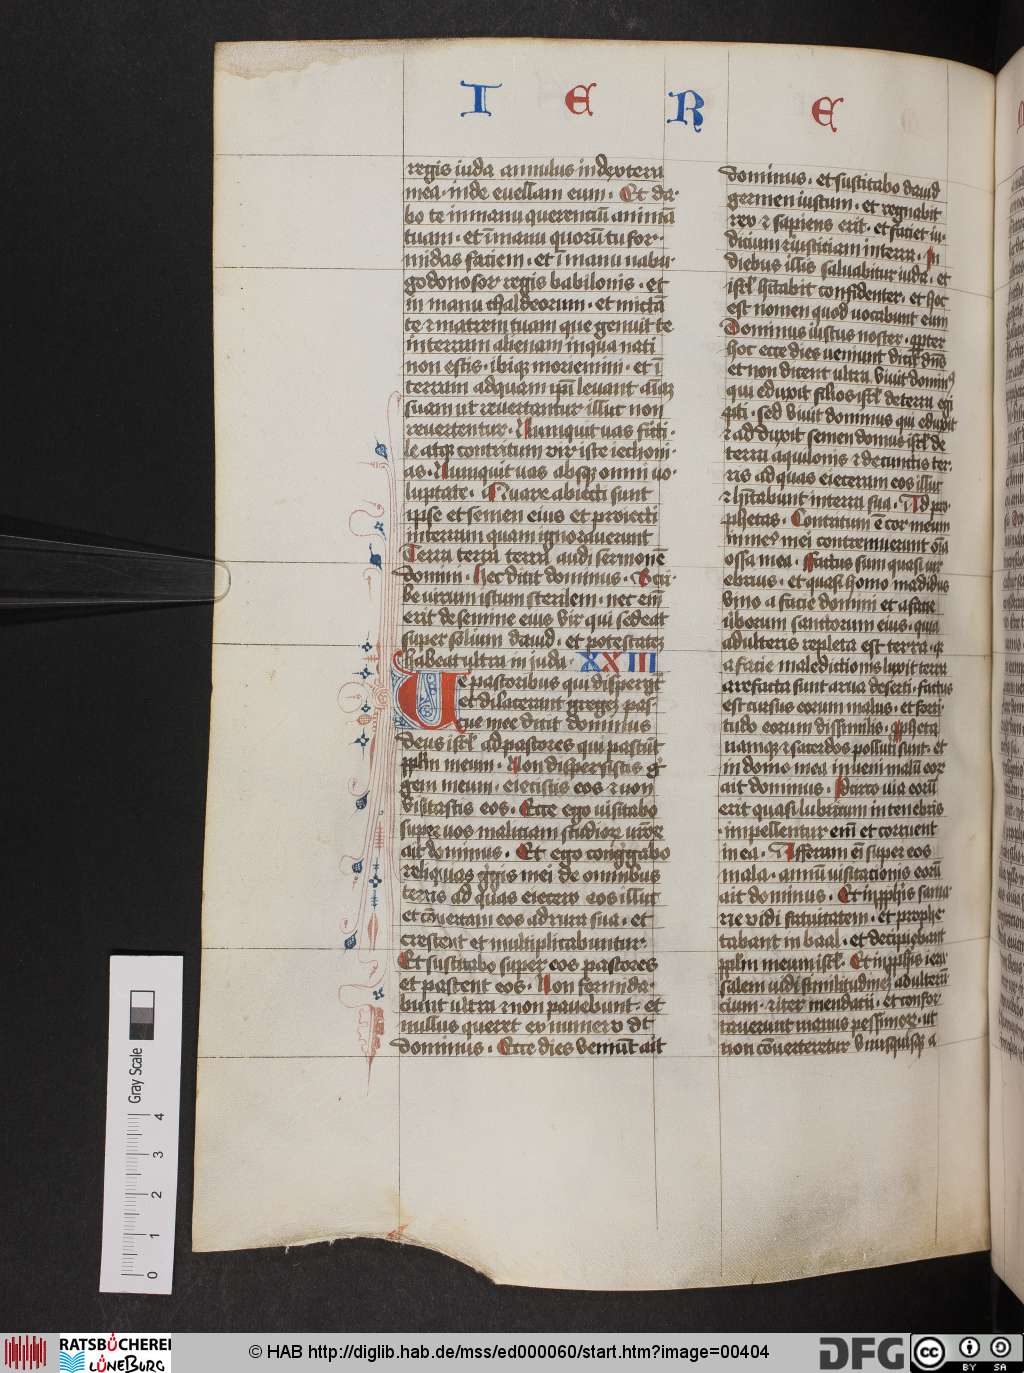 I E R E
regis iuda annulus in dextera
mea · inde euellam eum · Et da·
bo te in manu querenciū animā
tuam · et ī manu quorū tu for·
midas faciem · et ī manu nabu·
godonosor regis babilonis · et
in manu chaldeorum · et mittā
te ⁊ matrem tuam que genuit te
in terram alienam in qua nati
non estis · ibiqȝ moriemini · et ī
terram ad quam ip̄i leuant aīaȝ
suam ut reuertantur illuc non
reuertentur · Numquit uas ficti·
le atqȝ contritum vir iste iechoni·
as · Numquit uas absqȝ omni uo·
luptate · Quare abiecti sunt
ipse et semen eius et proiecti
in terram quam ignorauerunt
Terra terra terra audi sermonē
domini · Hec dicit dominus · Scri·
be uirum istum sterilem · nec em̄
erit de semine eius vir qui sedeat
super solium dauid · et potestateȝ
habeat ultra in iuda · XXIII
Ue pastoribus qui disperg̅t
et dilacerant gregeȝ pas·
cue mee dicit dominus
deus isr̄l ad pastores qui pascūt
pplm̄ meum · Non dispersistis gͤ
gem meum · eiecistis eos ⁊ non
visitastis eos · Ecce ego uisitabo
super uos maliciam studioꝝ vr̄oꝝ
ait dominus · Et ego cong̅gabo
reliquias gͤgis mei de omnibus
terris ad quas eiecero eos illuc
et cōuertam eos ad rura sua · et
crescent et multiplicabuntur·
Et suscitabo super eos pastores
et pascent eos · Non formida·
bunt ultra ⁊ non pauebunt · et
nullus queret ex numero dt̄
dominus · Ecce dies veniūt ait
dominus · et suscitabo dauid
germen iustum · et regnabit
rex ⁊ sapiens erit · et faciet iu·
dicium ⁊ iusticiam in terra · In
diebus illis saluabitur iuda · et
isr̄l hītabit confidenter · et hoc
est nomen quod uocabunt eum
Dominus iustus noster · ꝓpter
hoc ecce dies ueniunt dicit dn̄s
et non dicent ultra viuit dominꝰ
qui eduxit filios isr̄l de terra egi
pti · sed viuit dominus qui eduxit
⁊ adduxit semen domus isr̄l de
terra aquilonis ⁊ de cunctis ter·
ris ad quas eieceram eos illuc
⁊ hītabunt in terra sua · Ad pro·
phetas · Contritum ē cor meum
in me mei contremuerunt oīa
ossa mea · Factus sum quasi uir
ebrius · et quasi homo madidus
vino a facie domini et a facie
ūborum sanctorum eius · quia
adulteris repleta est terra · q̄
a facie maledictionis luxit terra
arefacta sunt arua deserti · factus
est cursus eorum malus · et forti·
tudo eorum dissimilis · Ppheta
namqȝ ⁊ sacerdos polluti sunt · et
in domo mea inueni malū eor
ait dominus · Idcirco via eorū
erit quasi lubricum in tenebris
·impellentur em̄ et corruent
in ea · Afferam em̄ super eos
mala · annū uisitacionis eorū
ait dominus · Et in ꝓphis sama·
rie vidi fatuitatem · et prophe·
tabant in baal · et decipiebant
pplm̄ meum isr̄l · Et in ꝓphis ieru
salem uidi similitudineȝ adulterā
cium · ⁊ iter mendacii · et confor
tauerunt manus pessimoꝝ · ut
non cōuerteretur vnusquisqȝ a
Gray Scale
0 1 2 3 4
RATSBÜCHEREI
LÜNEBURG
© HAB http://diglib.hab.de/mss/ed000060/start.htm?image=00404
DFG
cc BY SA